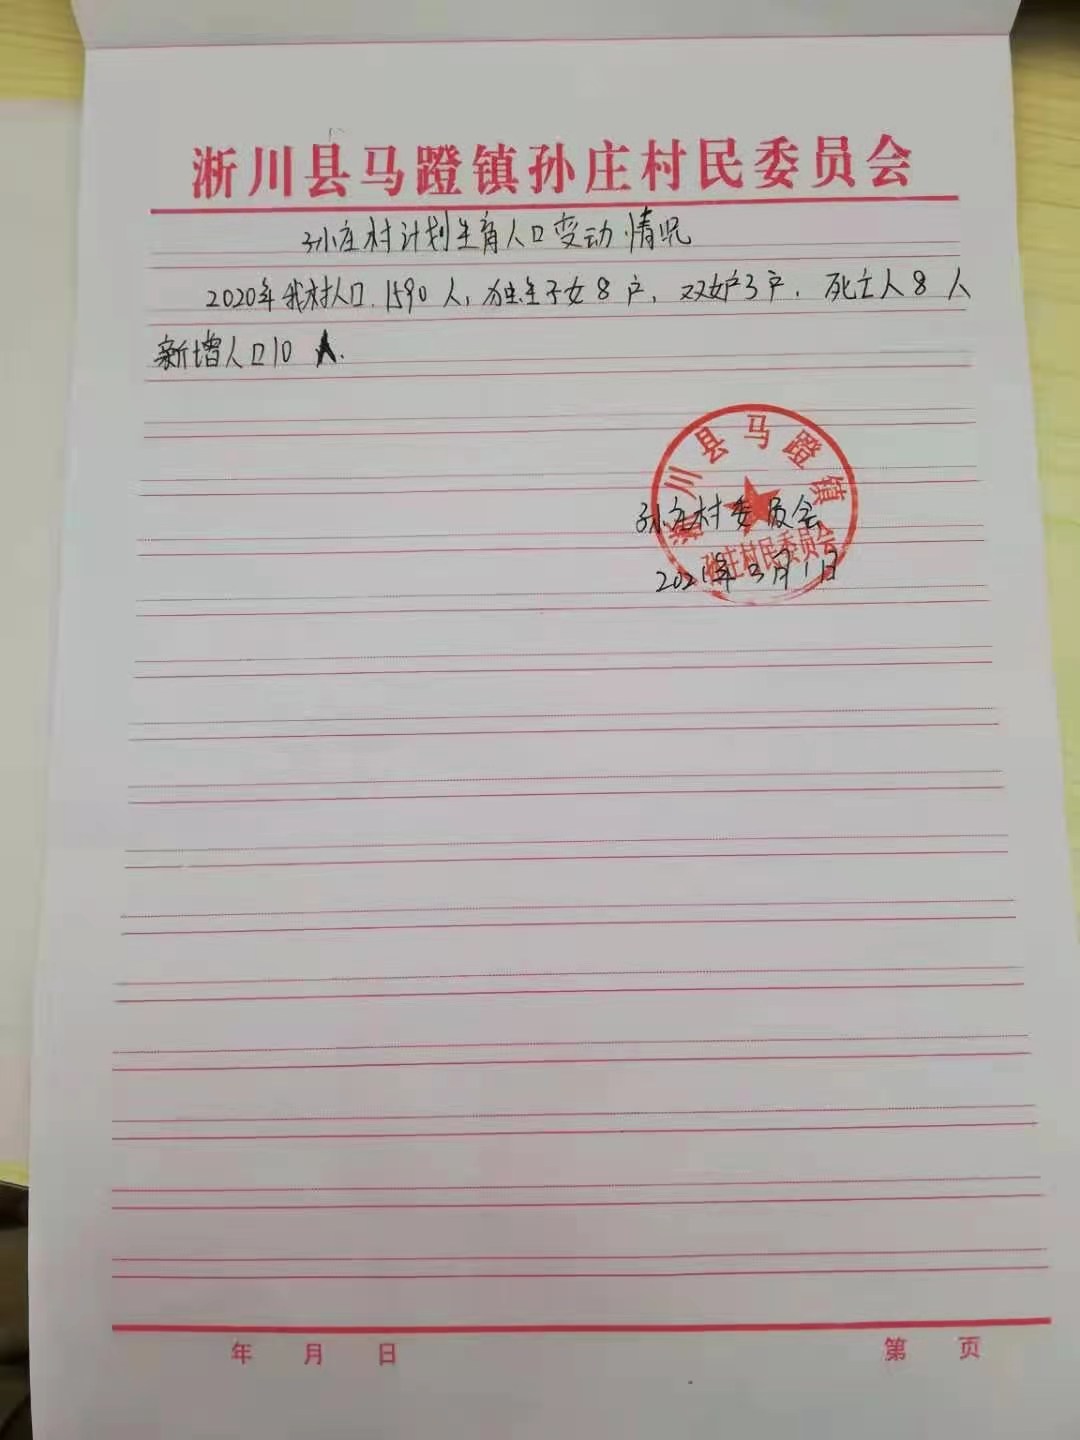 淅川县马蹬镇孙庄村民委员会
孙庄村计划生育人口变动情况
2020年我村人口1590人，独生子女8户，双女户3户，死亡人8人
新增人口10人.
淅川县马蹬镇
孙庄村委员会
孙庄村民委员会
2021年3月1日
年 月 日 第 页